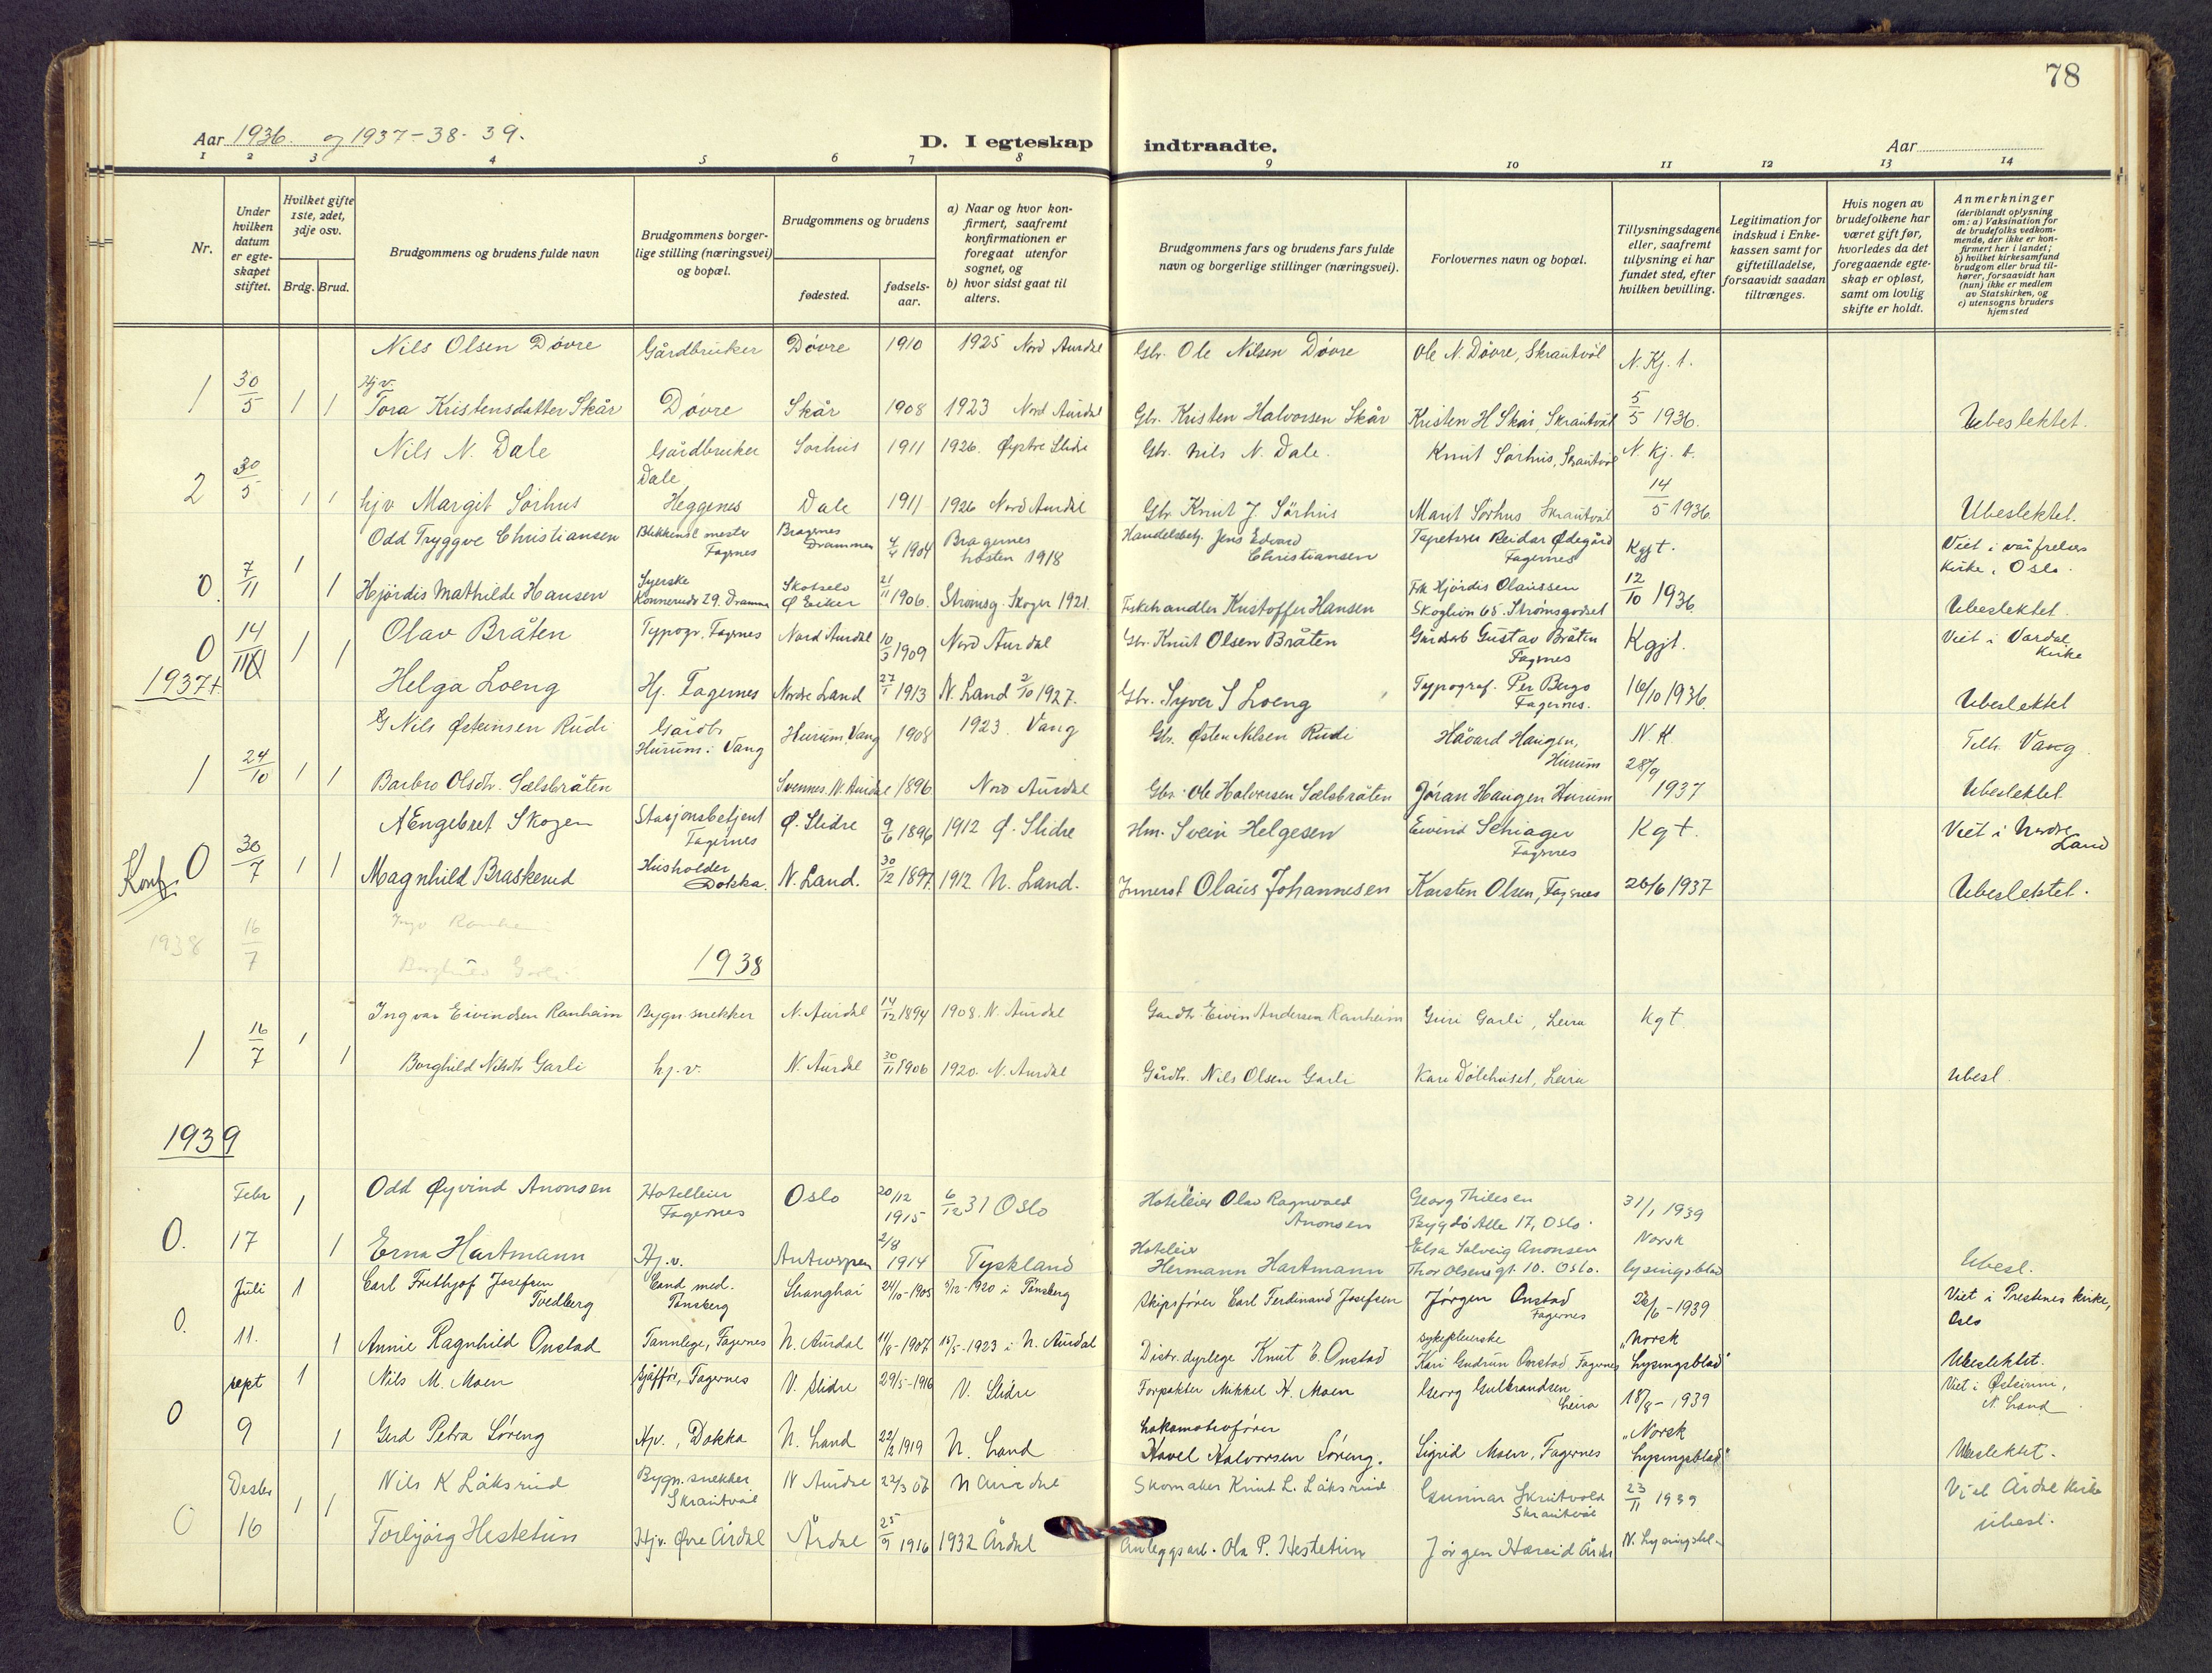 78
Aar 1936. og 1937-38-39.
D. I egteskap indtraadte.
Aar
1 2 3 4 5 6 7 8 9 10 11 12 13 14
Nr.
Under hvilken datum er egteskapet stiftet.
Hvilket gifte 1ste, 2det, 3dje osv.
Brdg. Brud.
Brudgommens og brudens fulde navn
Brudgommens borgerlige stilling (næringsvei) og bopæl.
Brudgommens og brudens
fødested.
fødselsaar.
a) Naar og hvor konfirmert, saafremt konfirmationen er foregaat utenfor sognet, og
b) hvor sidst gaat til alters.
Brudgommens fars og brudens fars fulde navn og borgerlige stillinger (næringsvei).
Forlovernes navn og bopæl.
Tillysningsdagene eller, saafremt tillysning ei har fundet sted, efter hvilken bevilling.
Legitimation for indskud i Enkekassen samt for giftetilladelse, forsaavidt saadan tiltrænges.
Hvis nogen av brudefolkene har været gift før, hvorledes da det foregaaende egteskap er opløst, samt om lovlig skifte er holdt.
Anmerkninger
(deriblandt oplysning om: a) Vaksination for de brudefolks vedkommende, der ikke er konfirmert her i landet; b) hvilket kirkesamfund brudgom eller brud tilhører, forsaavidt han (hun) ikke er medlem av Statskirken, og c) utensogns bruders hjemsted
Nils Olsen Døvre Gårdbruker Døvre 1910 1925 Nord Aurdal Gbr. Ole Nilsen Døvre Ole N. Døvre, Skrautvål N. Kj. t.
1 30/5 1 1 Hjv. Tora Kristensdatter Skår Døvre Skår 1908 1923 Nord Aurdal Gbr. Kristen Halvorsen Skår Kristen H Skår, Skrautvål 5/5 1936. Ubeslektet.
Nils N. Dale Gårdbruker Sørhus 1911 1926. Øystre Slidre Gbr. Nils N. Dale. Knut Sørhus, Skrautvål N. Kj. t.
2 30/5 1 1 hjv Margit Sørhus Dale Heggenes Dale 1911 1926 Nord Aurdal Gbr. Knut J. Sørhus Marit Sørhus Skrautvål 14/5 1936. Ubeslektet.
Odd Tryggve Christiansen Blikkensl. mester Fagernes Bragernes Drammen 4/4 1904 Bragernes høsten 1918 Handelsbetj. Jens Edvard Christiansen Tapetserer Reidar Ødegård Fagernes Kgjt. Viet i vårfrelsers kirke, Oslo.
0. 7/11 1 1 Hjørdis Mathilde Hansen Syerske Konnerudg 29. Drammen Skotselv Ø Eiker 21/11 1906. Strømsg. Skoger 1921. Fiskehandler Kristoffer Hansen Frk Hjørdis Olaussen Skoglien 65. Strømsgodset 12/10 1936 Ubeslektet.
0 14/11 1 1 Olav Bråten Typogr. Fagernes Nord Aurdal 10/3 1909 Nord Aurdal Gbr. Knut Olsen Bråten Gårdarb Gustav Bråten Fagernes Kgjt. Viet i Vardal Kirke
1937+ Helga Loeng Hj. Fagernes Nordre Land 27/1 1913 N. Land 2/10 1927. Gbr. Syver S Loeng Typograf. Per Bergo Fagernes. 16/10 1936. Ubeslektet
G Nils Østensen Rudi Gårdbr Hurum i Vang Hurum, Vang 1908 1923. Vang Gbr. Østen Nilsen Rudi Håvard Haugen, Hurum N. K. Tilh. Vang.
1 24/10 1 1 Barbro Olsdtr. Sælsbråten Svennes, N. Aurdal 1896 Nord Aurdal Gbr. Ole Halvorsen Sælsbråten Jøran Haugen Hurum 28/9 1937 Ubeslektet.
Engebret Skogen Stasjonsbetjent Fagernes Ø. Slidre 9/6 1896 1912 Ø. Slidre Hm. Svein Helgesen Eivind Schiager Fagernes Kgt. Viet i Nordre Land
Konf. 0 30/7 1 1 Magnhild Braskerud Husholder Dokka. N. Land. 30/12 1897. 1912 N. Land. Olaus Johannesen Karsten Olsen, Fagernes 26/6 1937 Ubeslektet.
1938 16/7 Ingv Ranheim
Borghild Garli
1938
Ingvar Eivindsen Ranheim Bygn. snekker N. Aurdal 14/12 1894 1908. N. Aurdal Gardbr. Eivin Andersen Ranheim Guri Garli, Leira Kgt
1 16/7 1 1 Borghild Nilsdtr Garli hj.v. N. Aurdal 30/11 1906 1920. N. Aurdal Gårdbr. Nils Olsen Garli Kari Dølehuset, Leira Ubesl.
1939
Febr 1 Odd Øyvind Anonsen Hotelleier Fagernes Oslo 20/12 1915 6/12 31 Oslo Hoteleier Olav Ragnvald Anonsen Georg Thilesen Bygdø Alle 17, Oslo. 31/1 1939
0. 17 1 Erna Hartmann Hj.v. Antwerpen 2/8 1914 Tyskland Hoteleier Hermann Hartmann Elsa Solveig Anonsen Thor Olsens gt. 10. Oslo. Norsk lysingsblad Ubesl.
Juli 1 Carl Frithjof Josefsen Tvedberg Cand. med. Tønsberg Shanghai 24/10-1905 5/12-1920 i Tønsberg Skipsfører Carl Ferdinand Josefsen Jørgen Onstad Fagernes 26/6-1939 Viet i Prestenes kirke, Oslo
0. 11. 1 Annie Ragnhild Onstad Tannlege, Fagernes N. Aurdal 11/8-1907 15/5-1923 i N. Aurdal Distr. dyrlege Knut E. Onstad sykepleierske Kari Gudrun Onstad, Fagernes "Norsk Lysingsblad" Ubeslektet.
sept 1 Nils M. Moen sjåffør, Fagernes V. Slidre 29/5-1916 V. Slidre Forpakter Mikkel H. Moen Georg Gulbrandsen Leira 18/8-1939 Viet i Østsinni, N. Land.
0 9 1 Gerd Petra Søreng Hjv., Dokka N. Land 22/2 1919 N. Land Lokomotivfører Havel Halvorsen Søreng. Sigrid Moen, Fagernes "Norsk Lysingsblad" Ubeslektet.
Desbr Nils K Låksrud Bygn. snekker Skrautvål N Aurdal 22/3 06 N Aurdal Skomaker Knut L. Låksrud Gunnar Skrautvold Skrautvål 23/11 1939 Viet Årdal Kirke
0 16 1 1 Torbjørg Hestetun Hjv. Øvre Årdal Årdal 25/9 1916 1932 Årdal Anleggsarb. Ola P. Hestetun Jørgen Hæreid Årdal N. Lysingsbl. Ubesl.